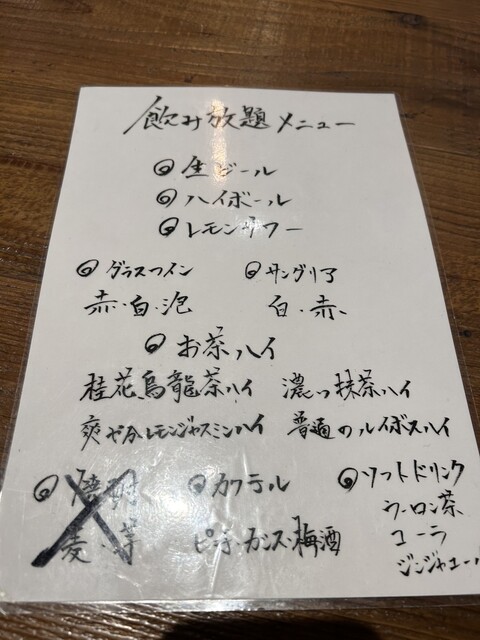 飲み放題メニュー
◎生ビール
◎ハイボール
◎レモンサワー
◎グラスワイン ◎サングリア
赤・白・泡 白・赤
◎お茶ハイ
桂花烏龍茶ハイ 濃っ抹茶ハイ
爽やかレモンジャスミンハイ 普通のルイボスハイ
◎焼酎 ◎カクテル ◎ソフトドリンク
麦・芋 ピーチ・カシス・梅酒 ウーロン茶
コーラ
ジンジャエール